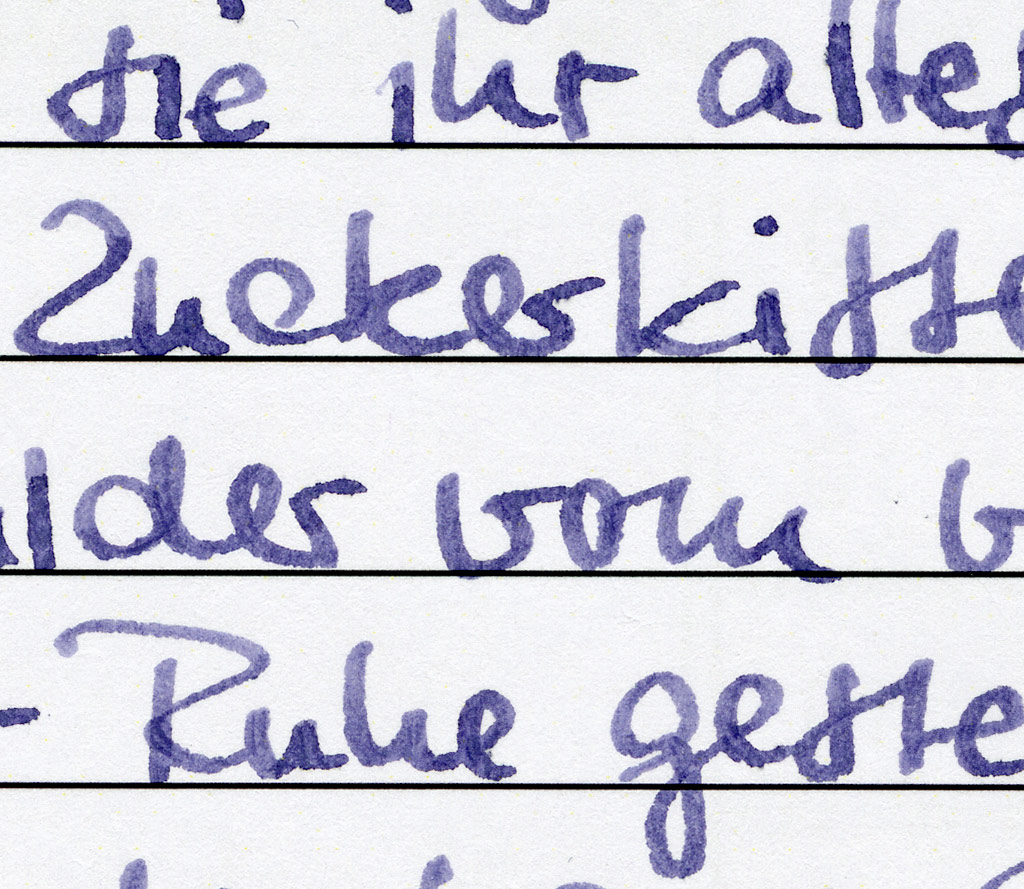 sie ihr alles
Zuckerkiste
lder vom
- Ruhe geste